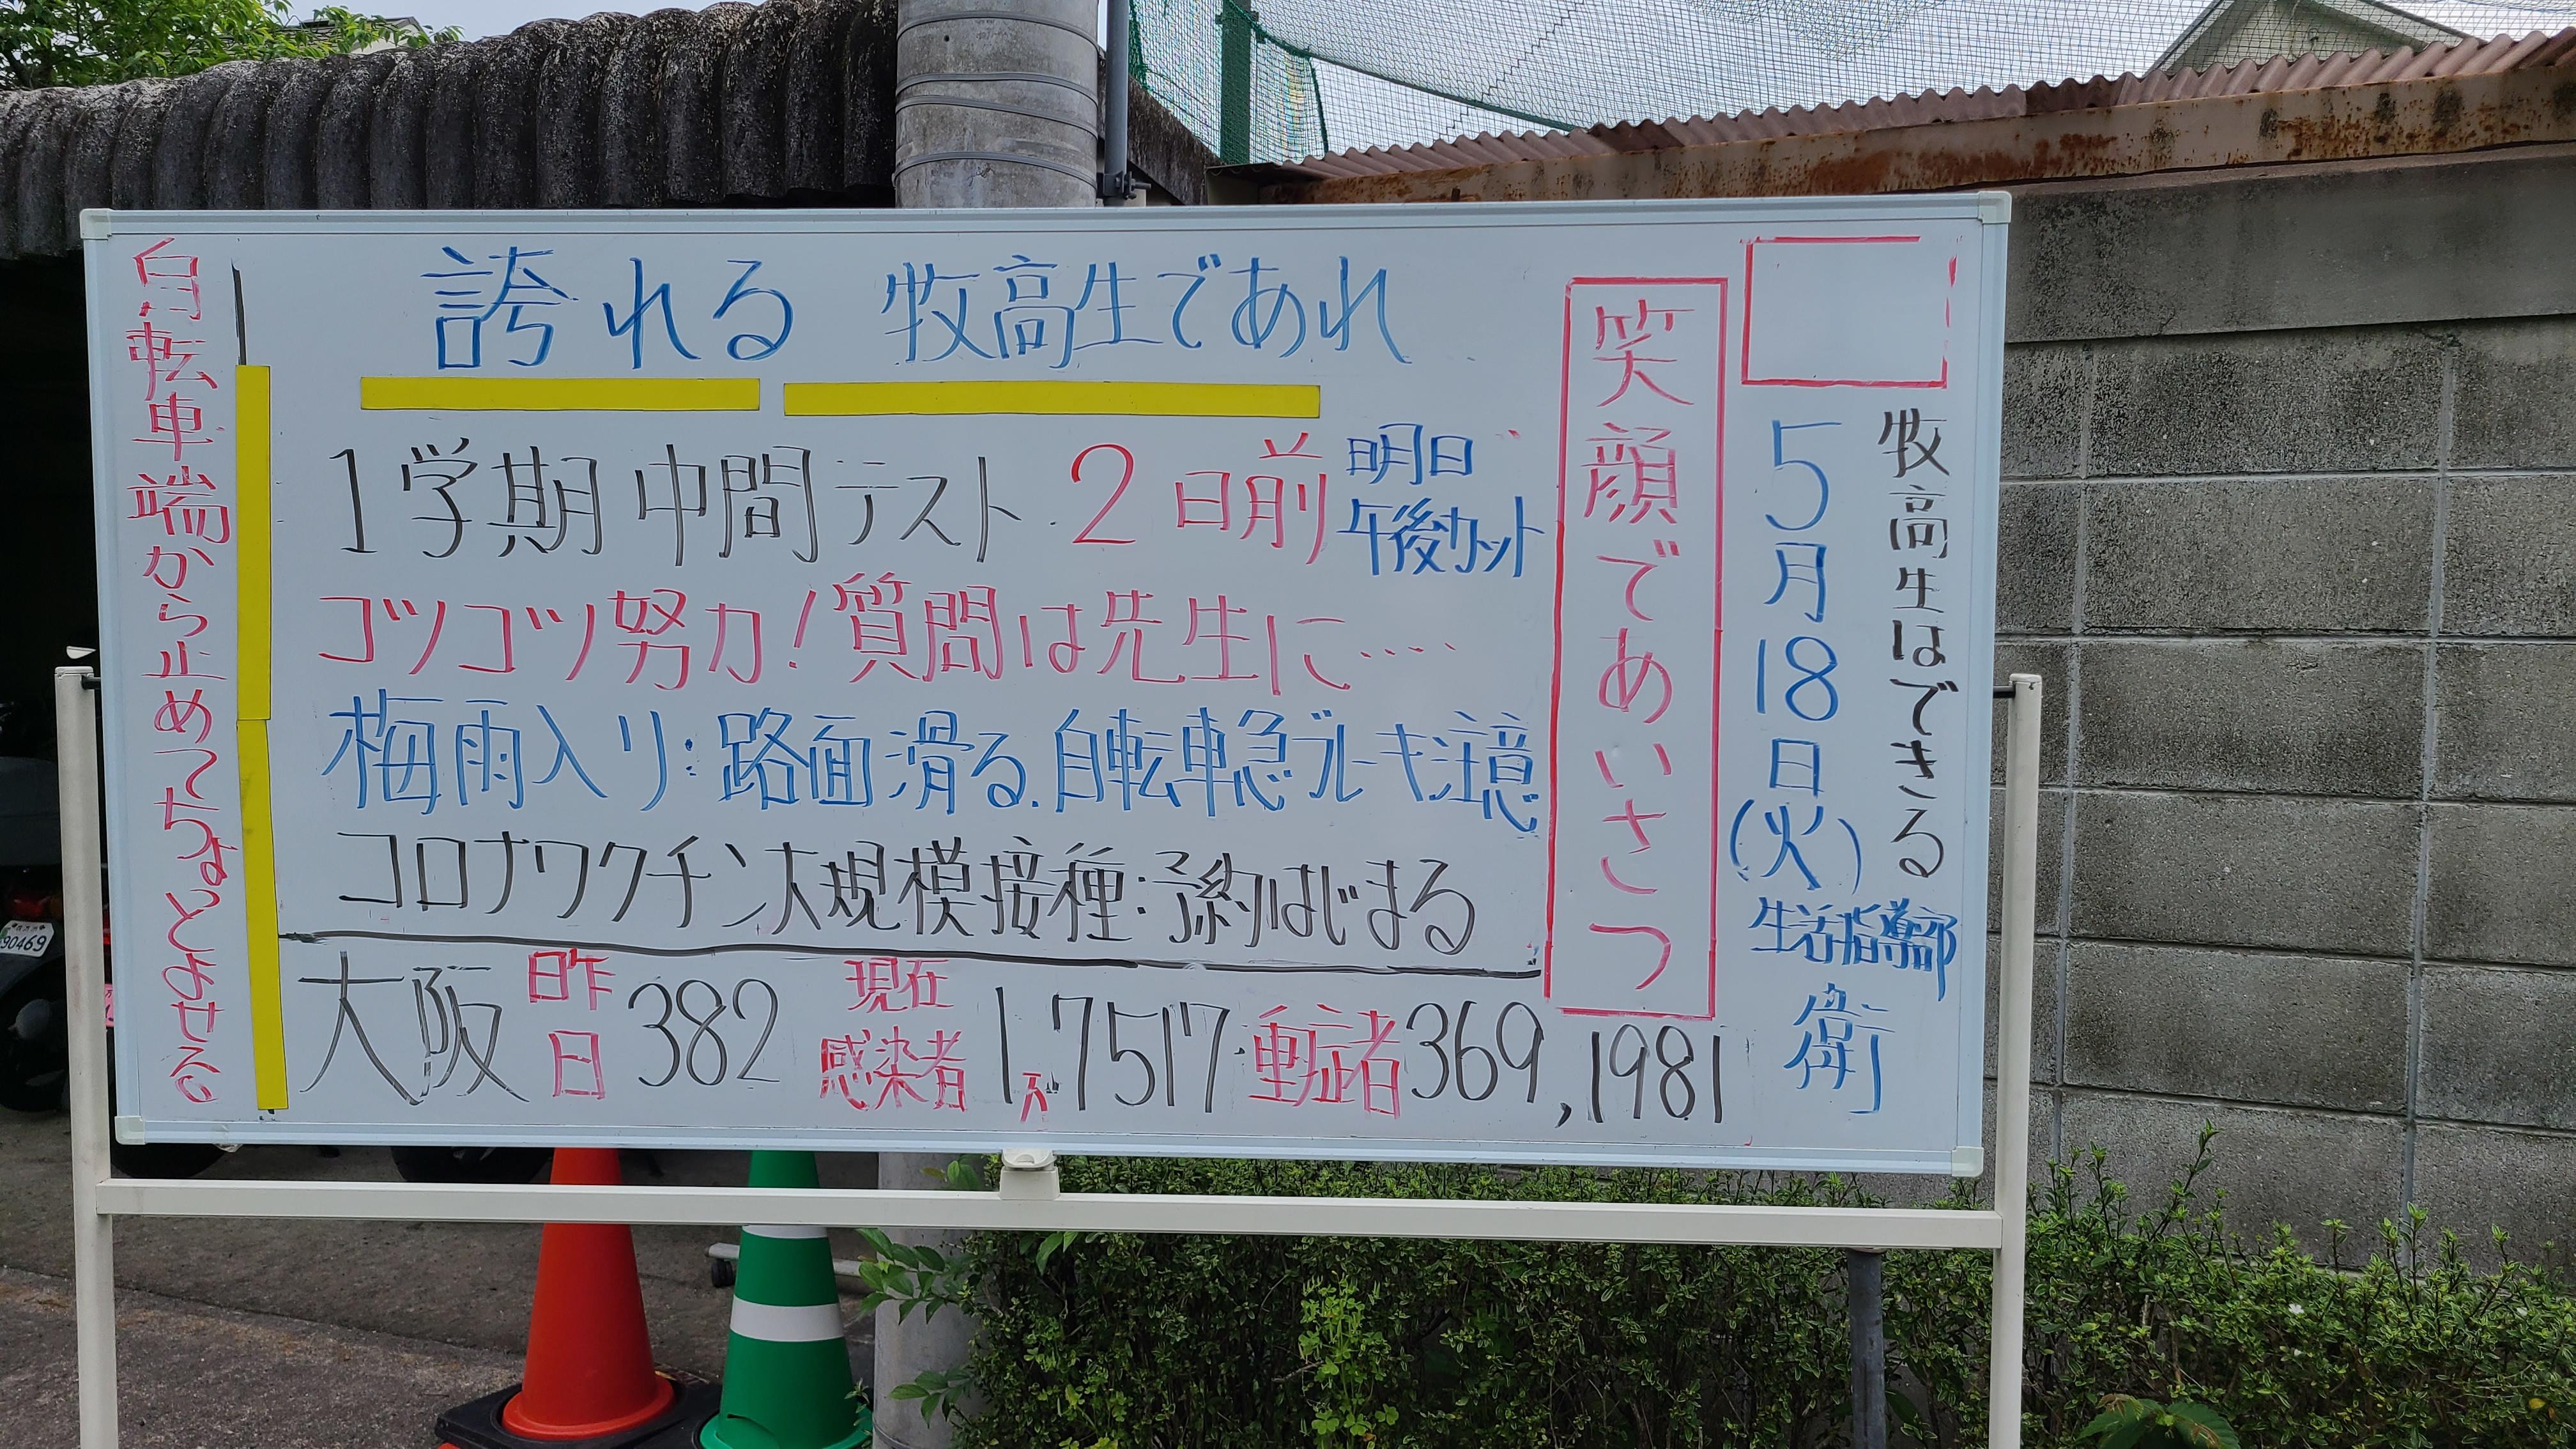 牧高生はできる
5月18日(火)生活指導部 衛
笑顔であいさつ
誇れる 牧高生であれ
1学期中間テスト 2日前 明日午後カット
コツコツ努力!質問は先生に‥‥
梅雨入り:路面滑る.自転車急ブレーキ注意
コロナワクチン大規模接種:予約はじまる
大阪 昨日382 現在感染者1万,7517 重症者369,1981
自転車端から止めてちょっとよせる。
90469